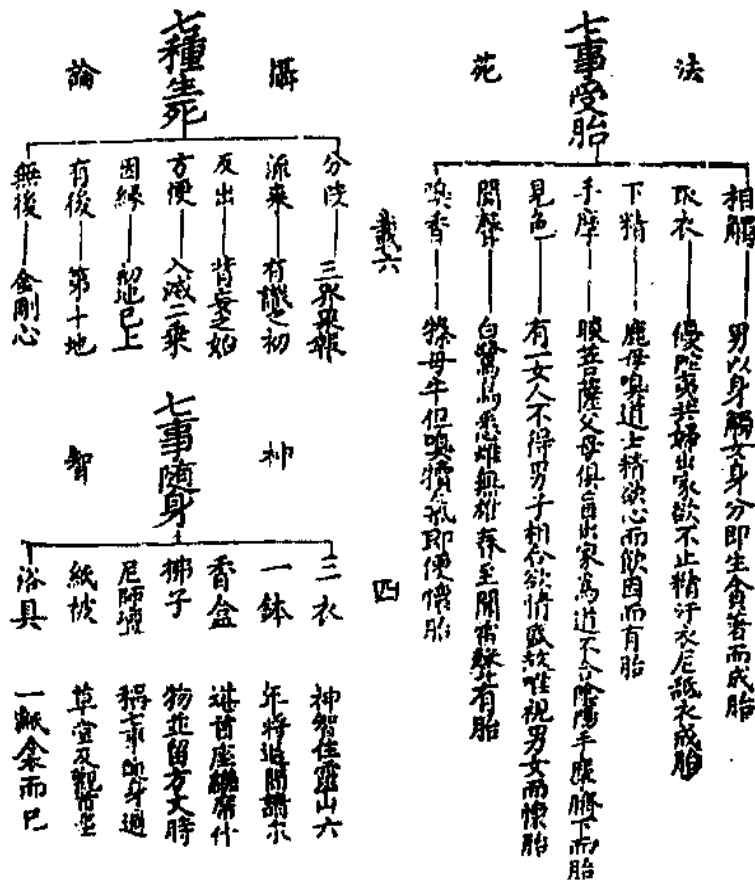 法苑
七事受胎
相觸 男以身觸女身分即生貪著而成胎
取衣 優陀夷共婦出家欲不止精汙衣尼舐衣成胎
下精 鹿母嗅道士精欲心而飲因而有胎
手摩 睒菩薩父母俱盲出家為道不合陰陽手摩臍下而胎
見色 有一女人不得男子相合欲情盛故唯視男女而懷胎
聞聲 白鷺鳥悉雌無雄春至聞雷聲有胎
嗅香 㹀母牛但嗅犢氣即便懷胎
義六
四
攝論
七種生死
分段 三界果報
派來 有識之初
反出 背妄之始
方便 入滅二乘
因緣 初地已上
有後 第十地
無後 金剛心
神智
七事隨身
三衣 神智住靈山六
一鉢 年將迨開講不
香盒
拂子 物並留方丈時
尼師壇 稱七事隨身過
紙被 草堂及觀
浴具 一瓶衾而已